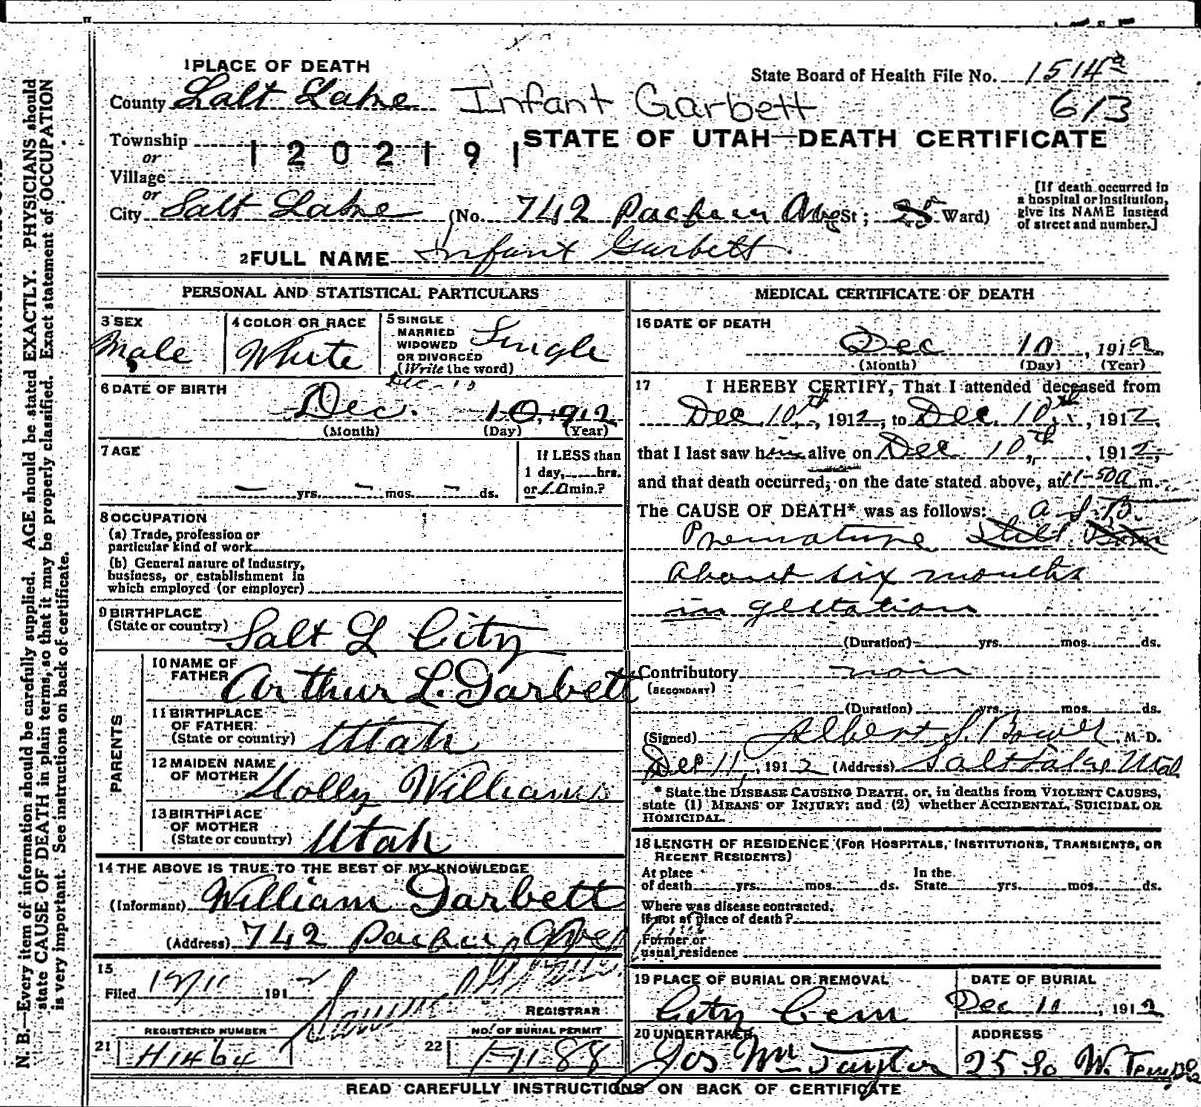 1 PLACE OF DEATH
State Board of Health File No. 1514a
County Salt Lake Infant Garbett 613
Township
or
1202191 STATE OF UTAH—DEATH CERTIFICATE
Village
or
City Salt Lake (No. 742 Ave St; Ward)
[If death occurred in a hospital or institution, give its NAME instead of street and number.]
2 FULL NAME Infant Garbett
PERSONAL AND STATISTICAL PARTICULARS
3 SEX
Male
4 COLOR OR RACE
White
5 SINGLE MARRIED WIDOWED OR DIVORCED (Write the word)
Single
6 DATE OF BIRTH
Dec-10
Dec. 10, 1912
(Month) (Day) (Year)
7 AGE
— yrs. — mos. — ds.
If LESS than
1 day, hrs.
or 10 min.?
8 OCCUPATION
(a) Trade, profession or
particular kind of work
(b) General nature of Industry,
business, or establishment in
which employed (or employer)
9 BIRTHPLACE
(State or country) Salt L City
PARENTS
10 NAME OF
FATHER Arthur L. Garbett
11 BIRTHPLACE
OF FATHER
(State or country) Utah
12 MAIDEN NAME
OF MOTHER Holly Williams
13 BIRTHPLACE
OF MOTHER
(State or country) Utah
14 THE ABOVE IS TRUE TO THE BEST OF MY KNOWLEDGE
(Informant) William Garbett
(Address) 742 Ave
15
Filed 12/11 1912
REGISTRAR
REGISTERED NUMBER
21 H1464
NO. OF BURIAL PERMIT
22 F1188
MEDICAL CERTIFICATE OF DEATH
16 DATE OF DEATH
Dec 10, 1912
(Month) (Day) (Year)
17 I HEREBY CERTIFY, That I attended deceased from
Dec 10th, 1912, to Dec 10th, 1912,
that I last saw him alive on Dec 10th, 1912,
and that death occurred, on the date stated above, at 11-50 a m.
The CAUSE OF DEATH* was as follows: a.S.B.
Premature Still Born
About six months
in gestation
(Duration) yrs. mos. ds.
Contributory
(SECONDARY)
(Duration) yrs. mos. ds.
(Signed) Albert S. Bower, M. D.
Dec 11, 1912 (Address) Salt Lake Utah
* State the DISEASE CAUSING DEATH, or, in deaths from VIOLENT CAUSES,
state (1) MEANS OF INJURY; and (2) whether ACCIDENTAL, SUICIDAL OR
HOMICIDAL.
18 LENGTH OF RESIDENCE (FOR HOSPITALS, INSTITUTIONS, TRANSIENTS, OR
RECENT RESIDENTS)
At place
of death yrs. mos. ds.
In the
State yrs. mos. ds.
Where was disease contracted,
if not at place of death?
Former or
usual residence
19 PLACE OF BURIAL OR REMOVAL
City Cem
DATE OF BURIAL
Dec 11, 1912
20 UNDERTAKER
Jos Wm Taylor
ADDRESS
25 So W. Temple
READ CAREFULLY INSTRUCTIONS ON BACK OF CERTIFICATE
N. B.—Every item of information should be carefully supplied. AGE should be stated EXACTLY. PHYSICIANS should
state CAUSE OF DEATH in plain terms, so that it may be properly classified. Exact statement of OCCUPATION
is very important. See instructions on back of certificate.